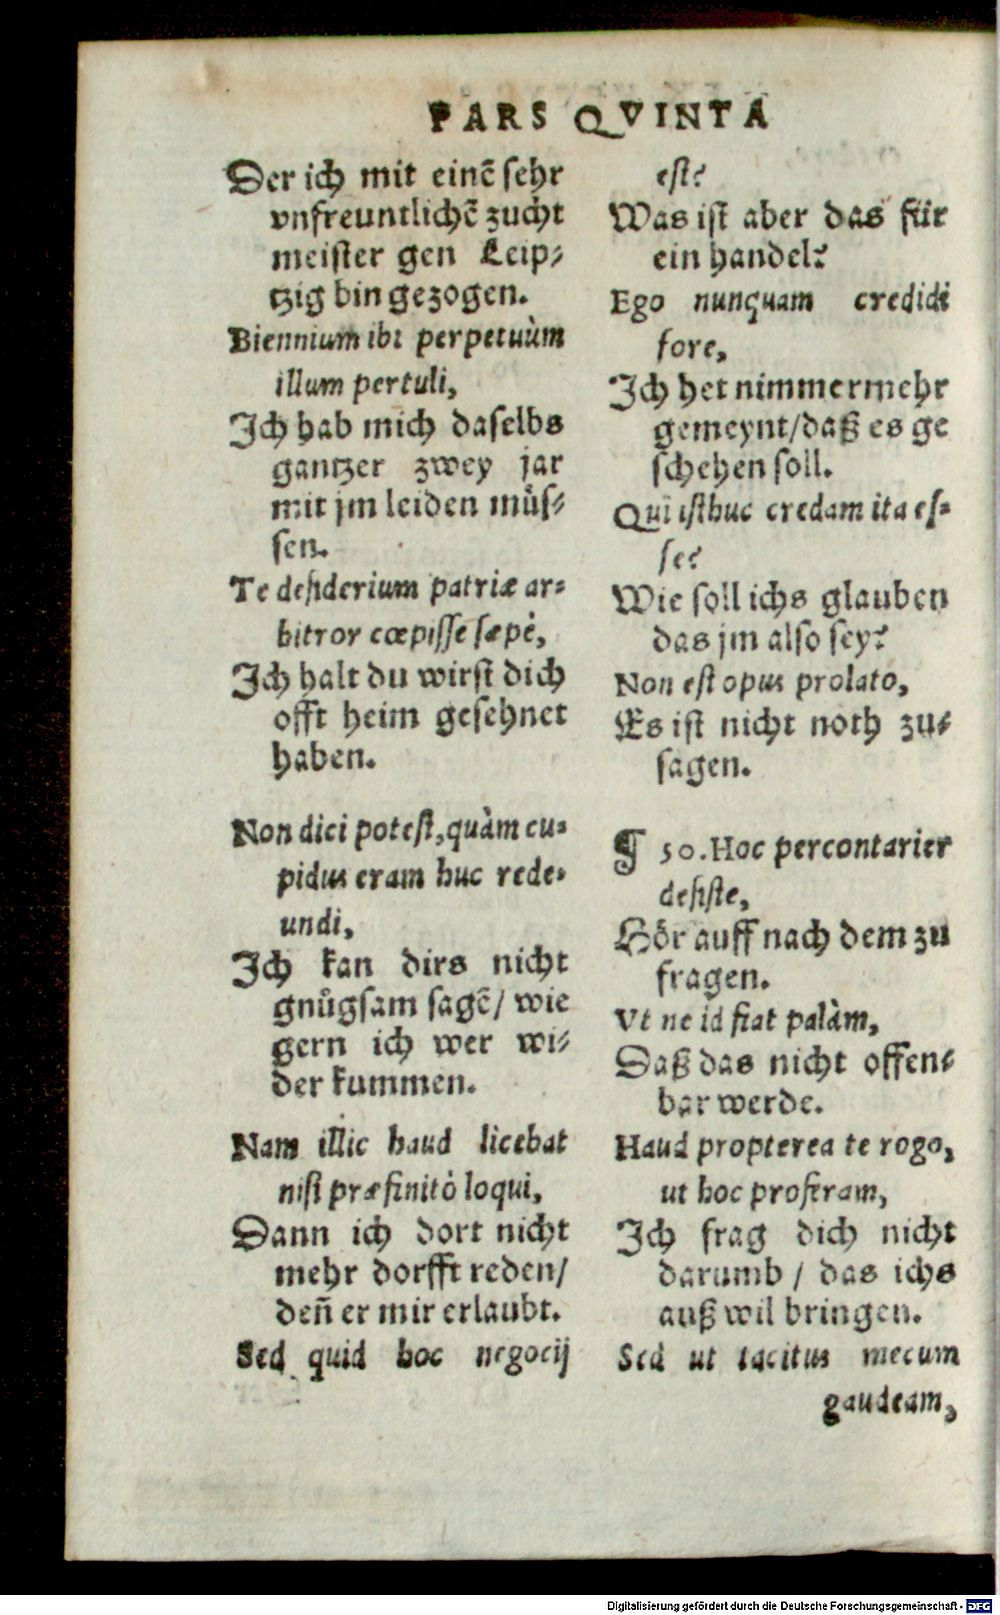 PARS QVINTA
Der ich mit einẽ sehr
vnfreuntlichẽ zucht
meister gen Leip⸗
tzig bin gezogen.
Biennium ibi perpetuùm
illum pertuli,
Ich hab mich daselbs
gantzer zwey jar
mit jm leiden muͤs⸗
sen.
Te desiderium patriæ ar⸗
bitror cœpisse sæpè,
Ich halt du wirst dich
offt heim gesehnet
haben.
Non dici potest, quàm cu⸗
pidus eram huc rede⸗
undi,
Ich kan dirs nicht
gnuͤgsam sagẽ/ wie
gern ich wer wi⸗
der kummen.
Nam illic haud licebat
nisi præfinitò loqui,
Dann ich dort nicht
mehr dorfft reden/
deñ er mir erlaubt.
Sed quid hoc negocij
est?
Was ist aber das für
ein handel?
Ego nunquam credidi
fore,
Ich het nimmermehr
gemeynt/daß es ge
schehen soll.
Qui isthuc credam ita es⸗
se?
Wie soll ichs glauben
das jm also sey?
Non est opus prolato,
Es ist nicht noth zu⸗
sagen.
¶ 50. Hoc percontarier
desiste,
Hoͤr auff nach dem zu
fragen.
Vt ne id fiat palàm,
Daß das nicht offen⸗
bar werde.
Haud propterea te rogo,
ut hoc proferam,
Ich frag dich nicht
darumb / das ichs
auß wil bringen.
Sed ut tacitus mecum
gaudeam,
Digitalisierung gefördert durch die Deutsche Forschungsgemeinschaft - DFG